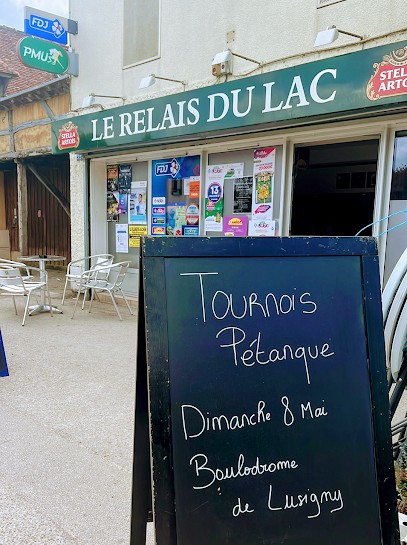 FDJ
PMU
STELLA ARTOIS
LE RELAIS DU LAC
STELLA
ARTOIS
FDJ
13
Tournois
Pétanque
Dimanche 8 Mai
Boulodrome
de Lusigny